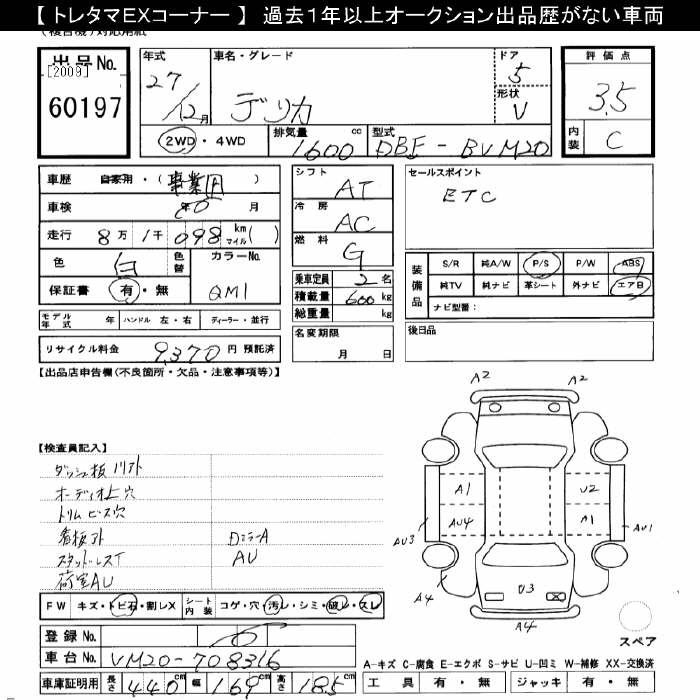 【 トレタマEXコーナー 】 過去1年以上オークション出品歴がない車両
出品No.
[2009]
60197
年式
27/12月
車名・グレード
デリカ
ドア
5
形状
V
2WD・4WD
排気量
1600 cc
型式
DBF-BVM20
評価点
3.5
内装
C
車歴 自家用・( 事業用 )
車検 年 月
走行 8万1千098 km マイル( )
色 白 色替 カラーNo.
QM1
保証書 有・無
モデル年式 年 ハンドル 左・右 ディーラー・並行
リサイクル料金 9,370 円 預託済
シフト
AT
冷房
AC
燃料
G
乗車定員 2 名
積載量 600 kg
総重量 kg
名変期限
月 日
セールスポイント
ETC
装備品
S/R 純A/W P/S P/W ABS
純TV 純ナビ 革シート 外ナビ エアB
ナビ型番:
後日品
【出品店申告欄(不良箇所・欠品・注意事項等)】
【検査員記入】
ダッシュ板リフト
オーディオ上穴
トリムビス穴
看板跡 DミラーA
スタッドレスT AU
荷室AU
A2 A2
A1 U2
AU3 AU4 A1 AU1
A4 U3 A4
スペア
FW キズ・トビ石・割レX シート内装 コゲ・穴・汚レ・シミ・破レ・スレ
登録No.
車台No. VM20-708316
車庫証明用 長さ 440cm 幅 169cm 高さ 185cm
A-キズ C-腐食 E-エクボ S-サビ U-凹ミ W-補修 XX-交換済
工具 有・無 ジャッキ 有・無